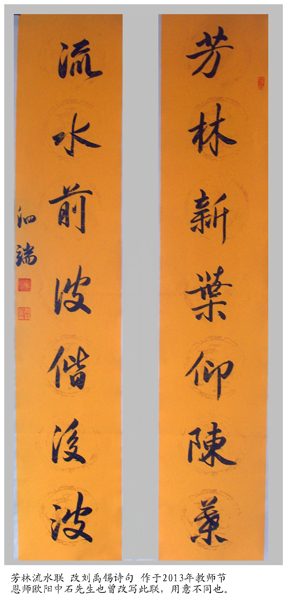 芳林新葉仰陳葉
流水前波偕後波
泗端
芳林流水联 改刘禹锡诗句 作于2013年教师节
恩师欧阳中石先生也曾改写此联,用意不同也。